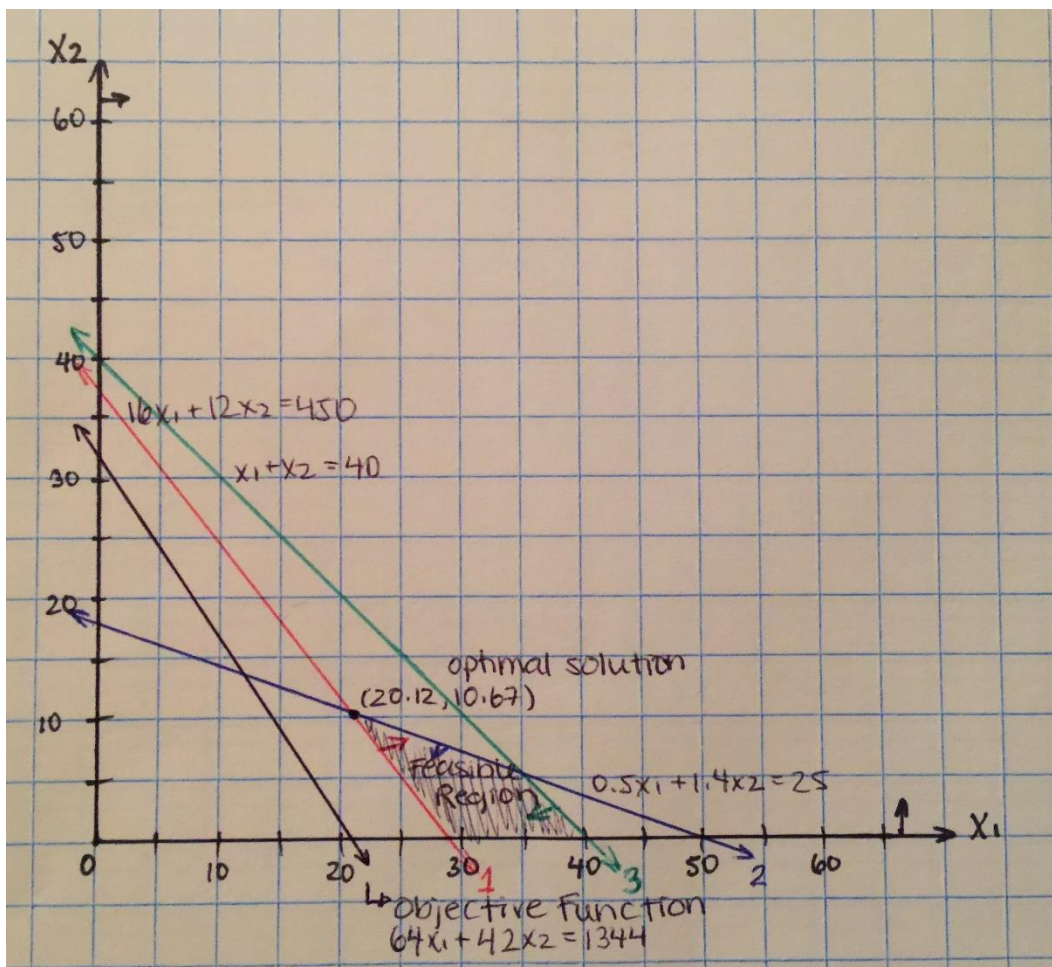 X2
60
50
40
16x₁+12x₂=450
x₁+x₂=40
30
20
optimal solution
(20.12, 10.67)
10
Feasible
Region
0.5x₁+1.4x₂=25
X₁
0 10 20 30 40 50 60
1 3 2
Objective Function
64x₁+42x₂=1344